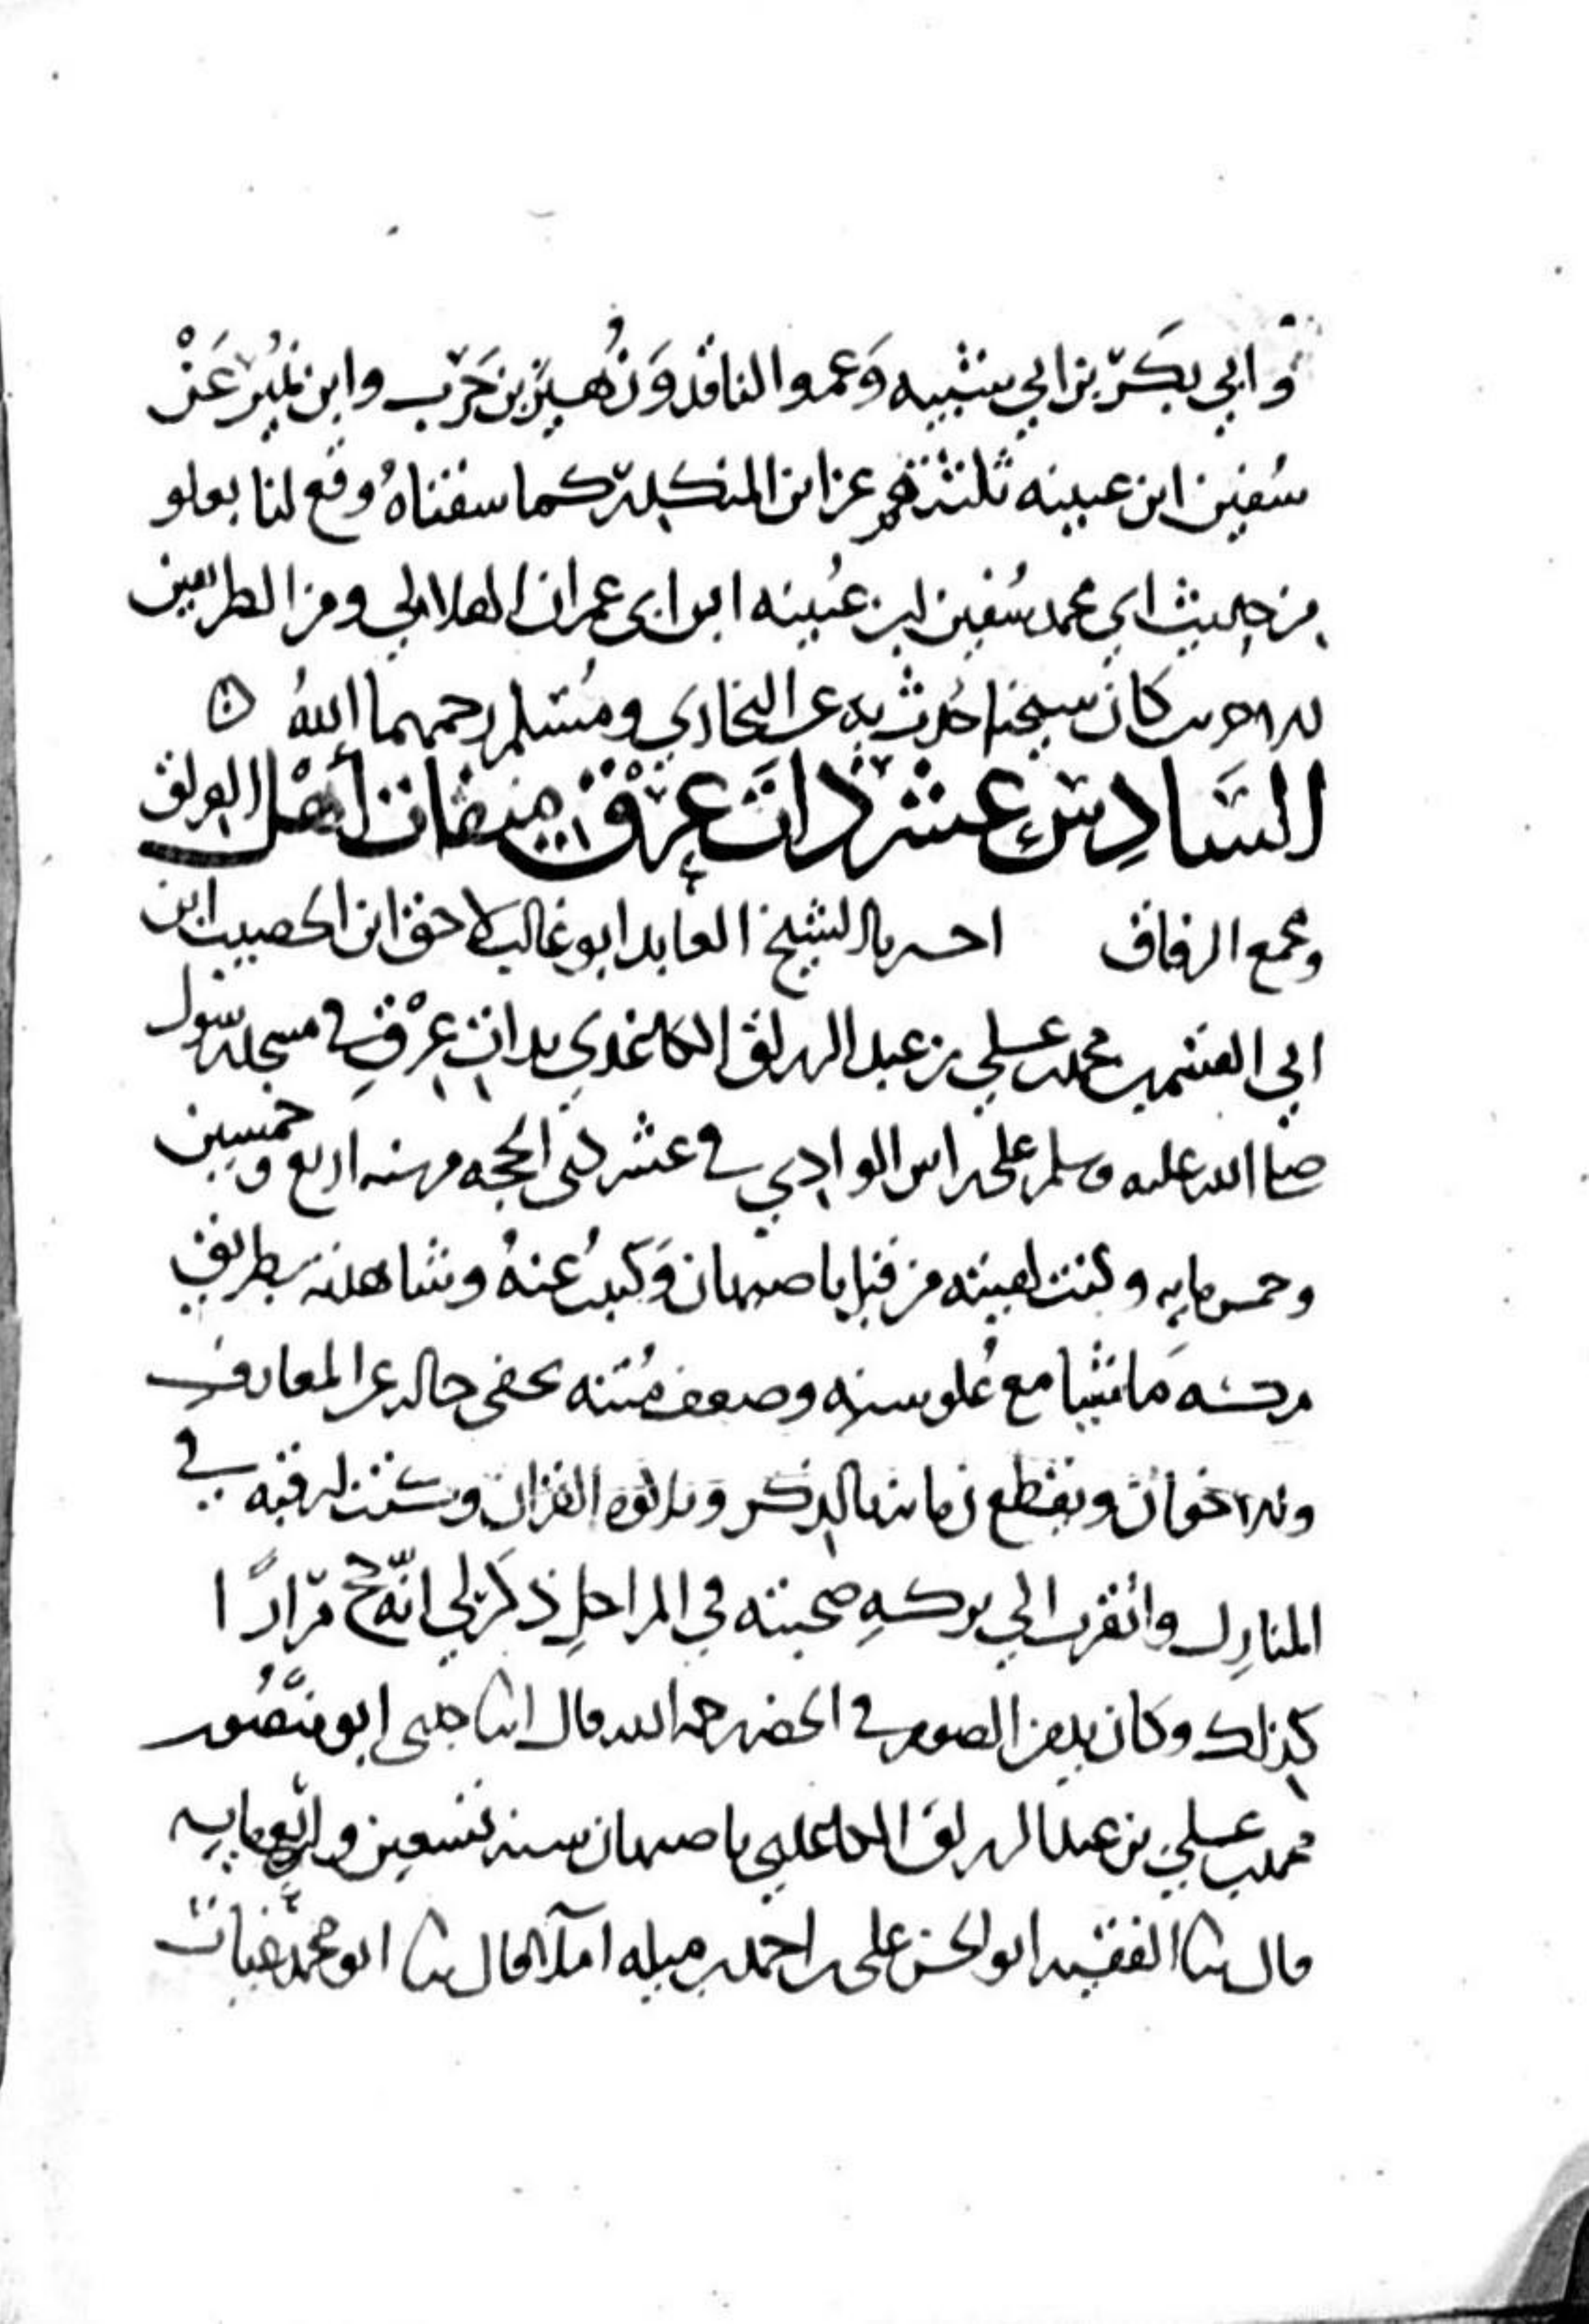 وابي بكر بن ابي شيبه وعمرو الناقد وزهير بن حرب وابن نمير عن
سفين ابن عيينه ثلثتهم عن ابن المنكدر كما سقناه وقع لنا بعلو
من حديث ابي محمد سفين ابن عيينه ابن ابي عمران الهلالي ومن الطريقين
كان شيخنا حدث به عن البخاري ومسلم رحمهما الله
السادس عشر ذات عرق ميقات أهل العراق
ومجمع الرفاق اخبرنا الشيخ العابد ابو غالب لاحق ابن الخصيب ابن
ابي القسم محمد بن علي بن عبد الرزاق الكاغدي بذات عرق في مسجد رسول
صلى الله عليه وسلم على راس الوادي في عشر ذي الحجه من سنه اربع وخمسين
وخمس مايه وكنت لقيته من قبل باصبهان وكتبت عنه وشاهدته بطريق
مكه ماشيا مع علو سنه وضعف متنه يخفي حاله عن المعارف
والاخوان ويقطع زمانه بالذكر وتلاوه القران وكنت ارقبه في
المنازل واتقرب الي بركه صحبته في المراحل ذكر لي انه حج مرارًا
كذلك وكان يدمن الصوم في الحضر رحمه الله قال انبا جدي ابو منصور
محمد بن علي بن عبد الرزاق الكاغدي باصبهان سنه تسعين واربع مايه
قال ثنا الفقيه ابو الحسن علي بن احمد بن ميله املا قال ثنا ابو محمد